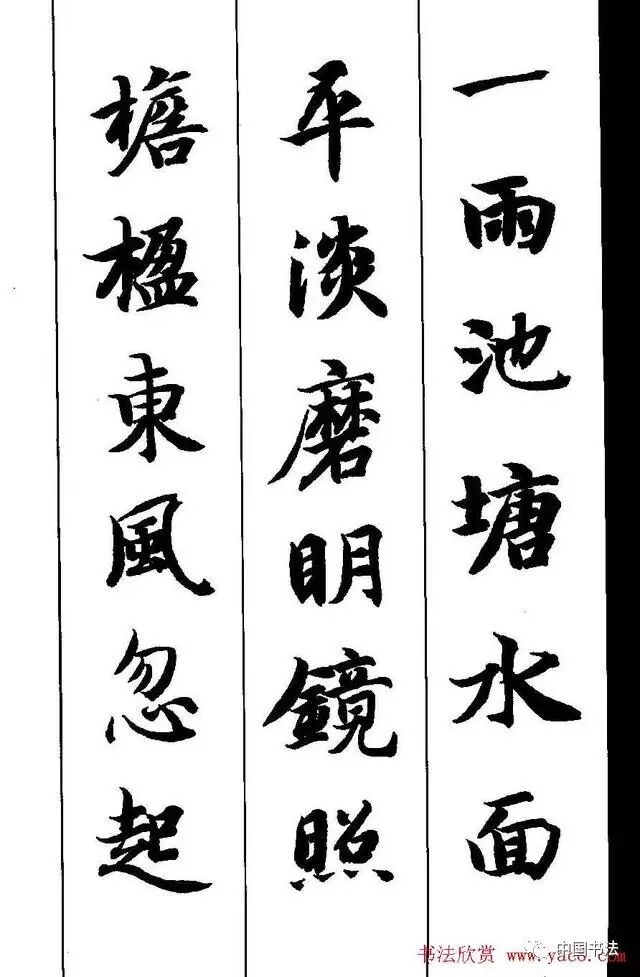 一雨池塘水面
平淡磨明鏡照
檐楹東風忽起
中国书法
书法欣赏 www.yac8.com